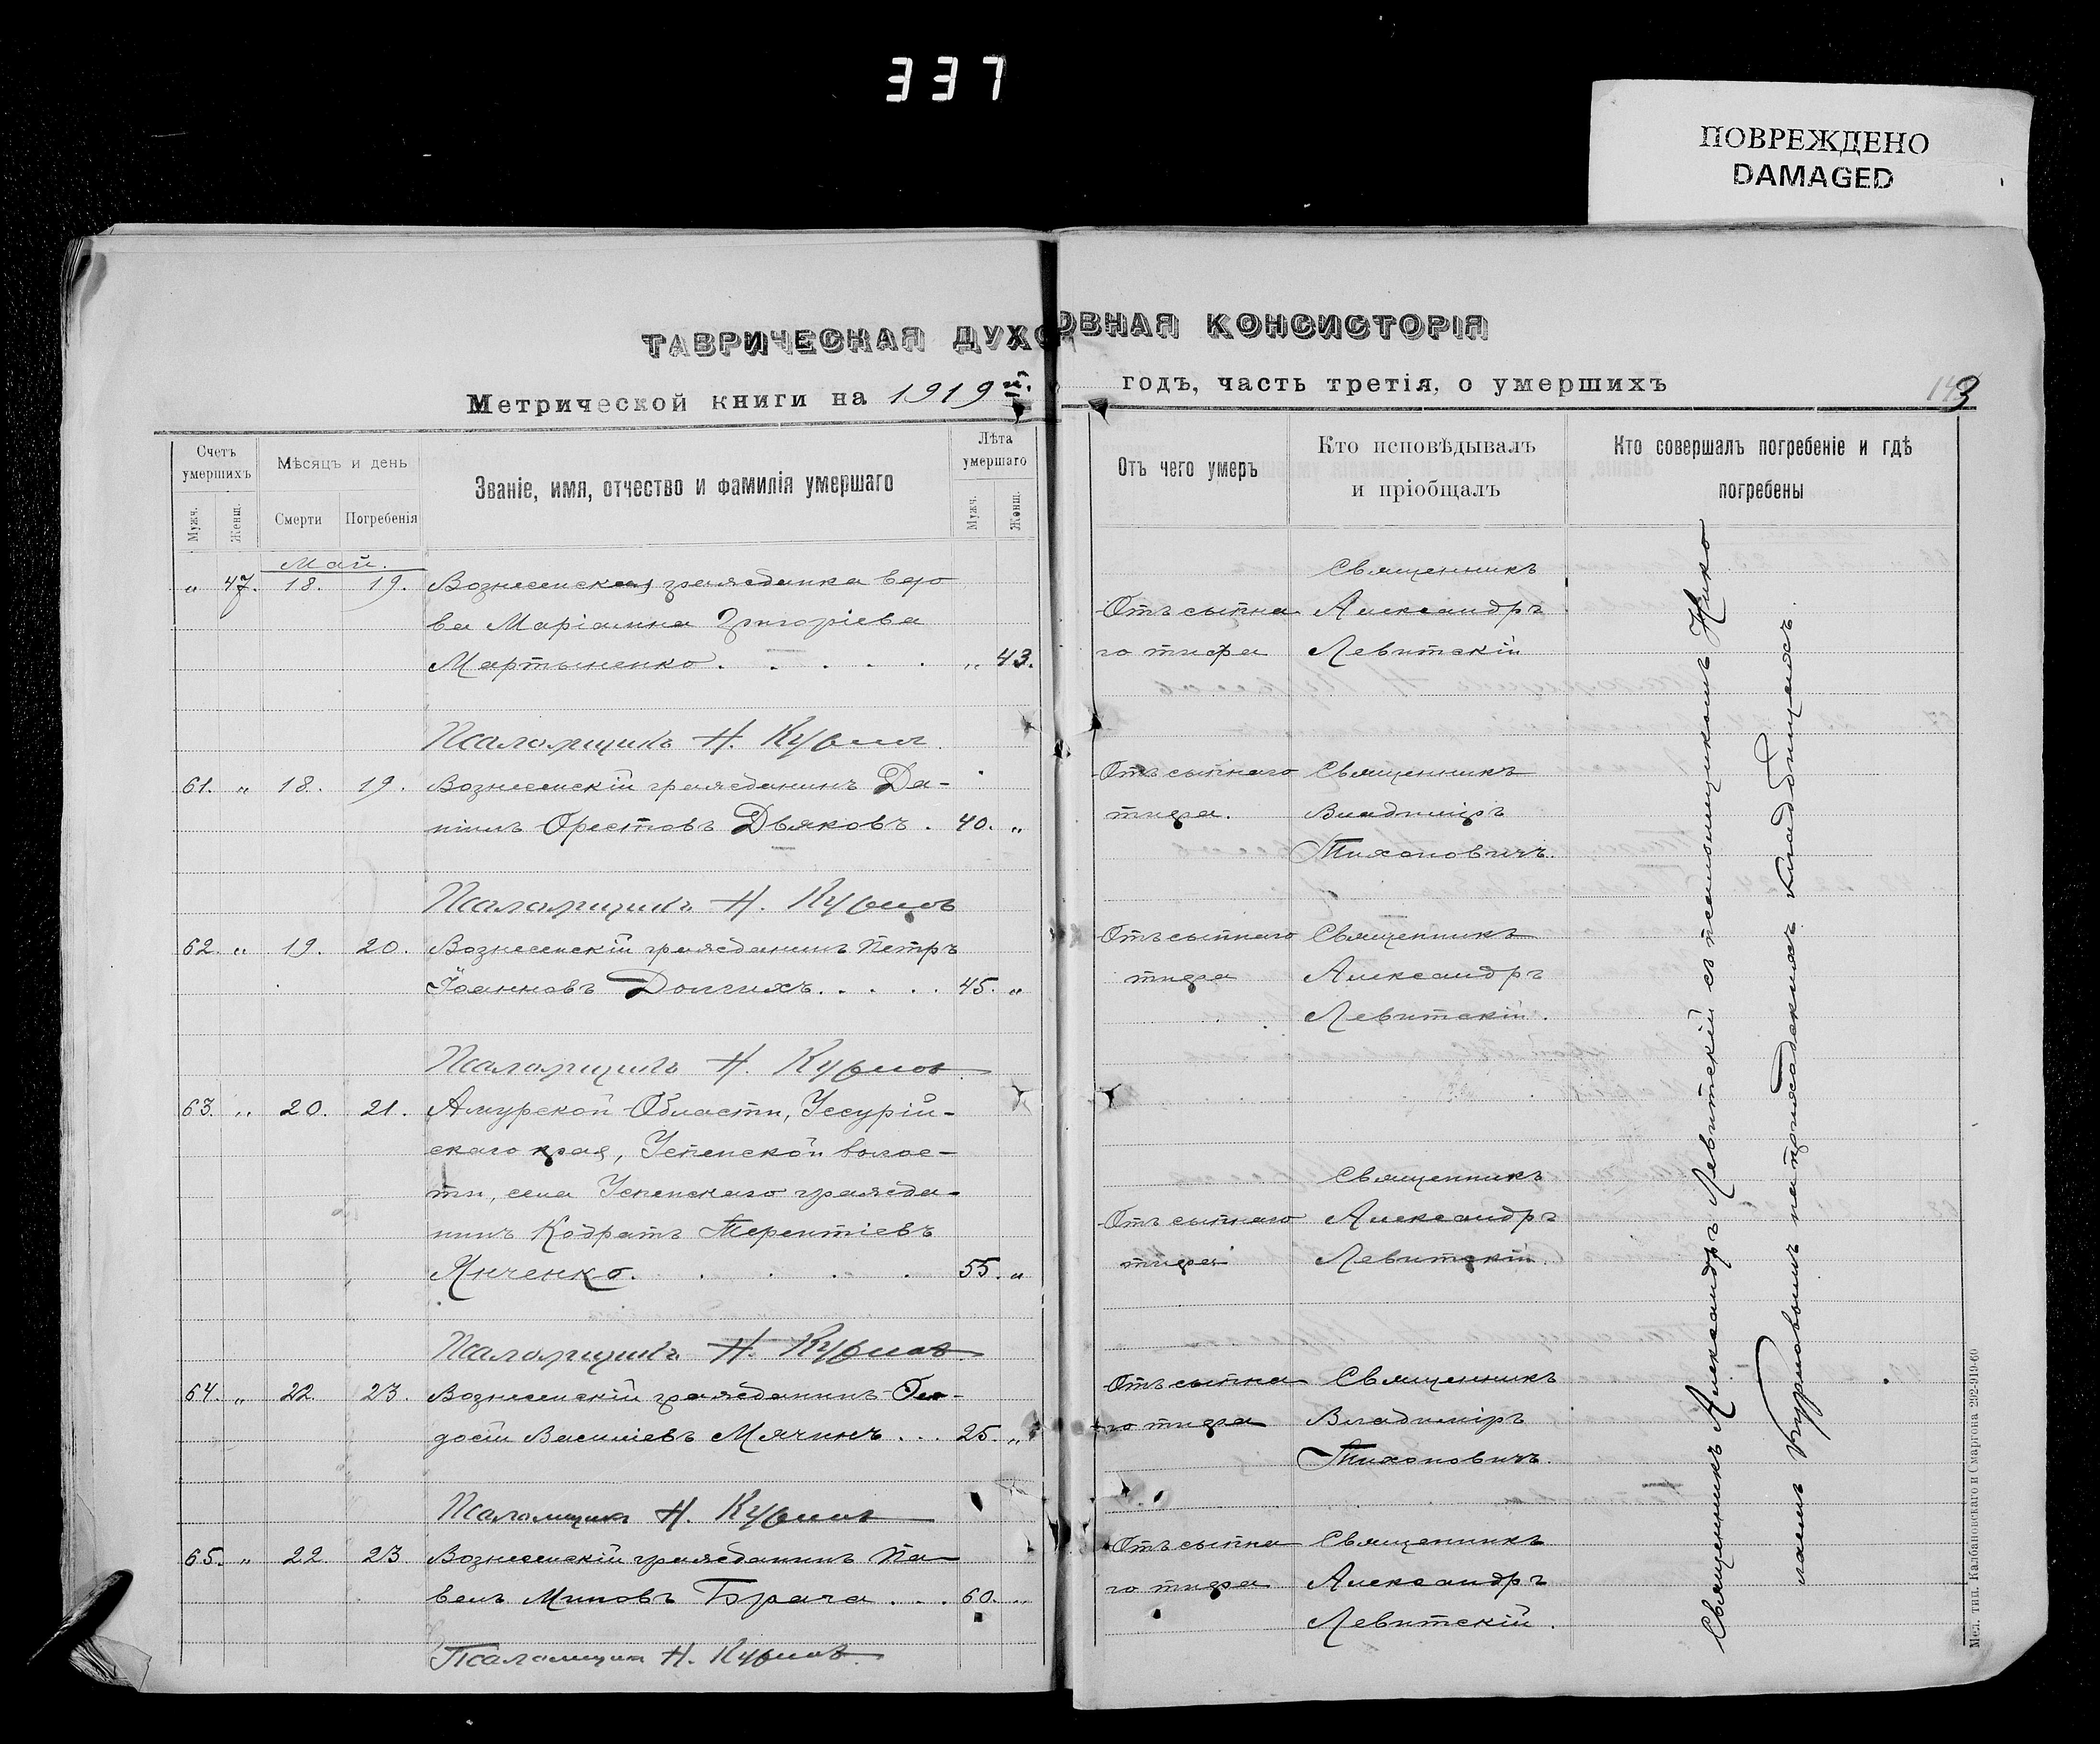 337
ПОВРЕЖДЕНО
DAMAGED
ТАВРИЧЕСКАЯ ДУХОВНАЯ КОНСИСТОРІЯ
Метрической книги на 1919й. годъ, часть третія, о умершихъ
143
Счетъ умершихъ
Мѣсяцъ и день
Званіе, имя, отчество и фамилія умершаго
Лѣта умершаго
Отъ чего умеръ
Кто исповѣдывалъ и пріобщалъ
Кто совершалъ погребеніе и гдѣ погребены
Мужч. Женщ. Смерти Погребенія Мужч. Женщ.
Май.
" 47. 18. 19. Вознесенская гражданка вдо
ва Маріамна Григоріева
Мартыненко. . . . . . „ 43.
Отъ сыпна
го тифа
Священникъ
Александръ
Левитскій
Псаломщикъ Н. Курилов
61. " 18. 19. Вознесенскій гражданинъ Да-
ніилъ Орестовъ Дьяковъ. 40. "
Отъ сыпнаго
тифа.
Священникъ
Владиміръ
Тихоновичъ.
Псаломщикъ Н. Куриловъ
62. " 19. 20. Вознесенскій гражданинъ Петръ
Іоанновъ Долгихъ. . . . . 45. "
Отъ сыпнаго
тифа
Священникъ
Александръ
Левитскій.
Псаломщикъ Н. Куриловъ
63. " 20. 21. Амурской Области, Уссурій-
скаго края, Успенской волос-
ти, села Успенскаго гражда-
нинъ Кодратъ Терентіевъ
Янченко. . . . . . 55. "
Отъ сыпнаго
тифа
Священникъ
Александръ
Левитскій.
Псаломщикъ Н. Куриловъ
64. " 22. 23. Вознесенскій гражданинъ Фео-
досій Василіевъ Мячинъ . . . 25. "
Отъ сыпна
го тифа
Священникъ
Владиміръ
Тихоновичъ.
Псаломщикъ Н. Куриловъ
65. " 22. 23. Вознесенскій гражданинъ Па-
велъ Миновъ Брага . . . 60. "
Отъ сыпна
го тифа
Священникъ
Александръ
Левитскій.
Псаломщикъ Н. Куриловъ
Священникъ Александръ Левитскій съ псаломщикомъ Нико
лаемъ Куриловымъ на приходскомъ кладбищѣ.
Мел. тип. Калбановскаго и Смаргона 292-919-60